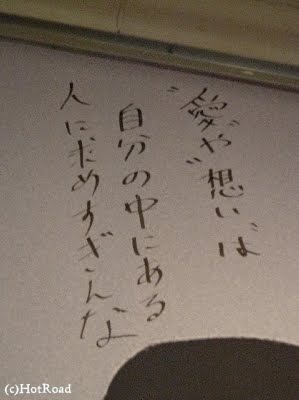 "愛"や"想い"は
自分の中にある
人に求めすぎんな
(c)HotRoad